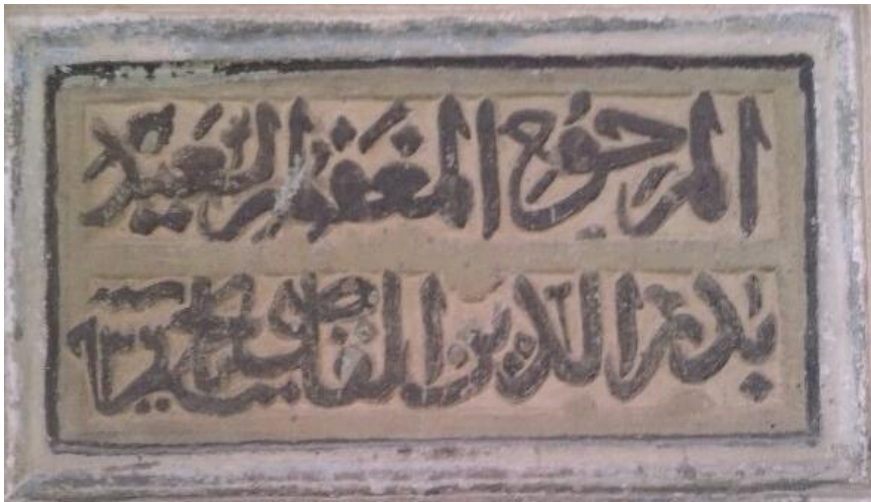 المرحوم المغفور السعيد
بدر الدين القاضي